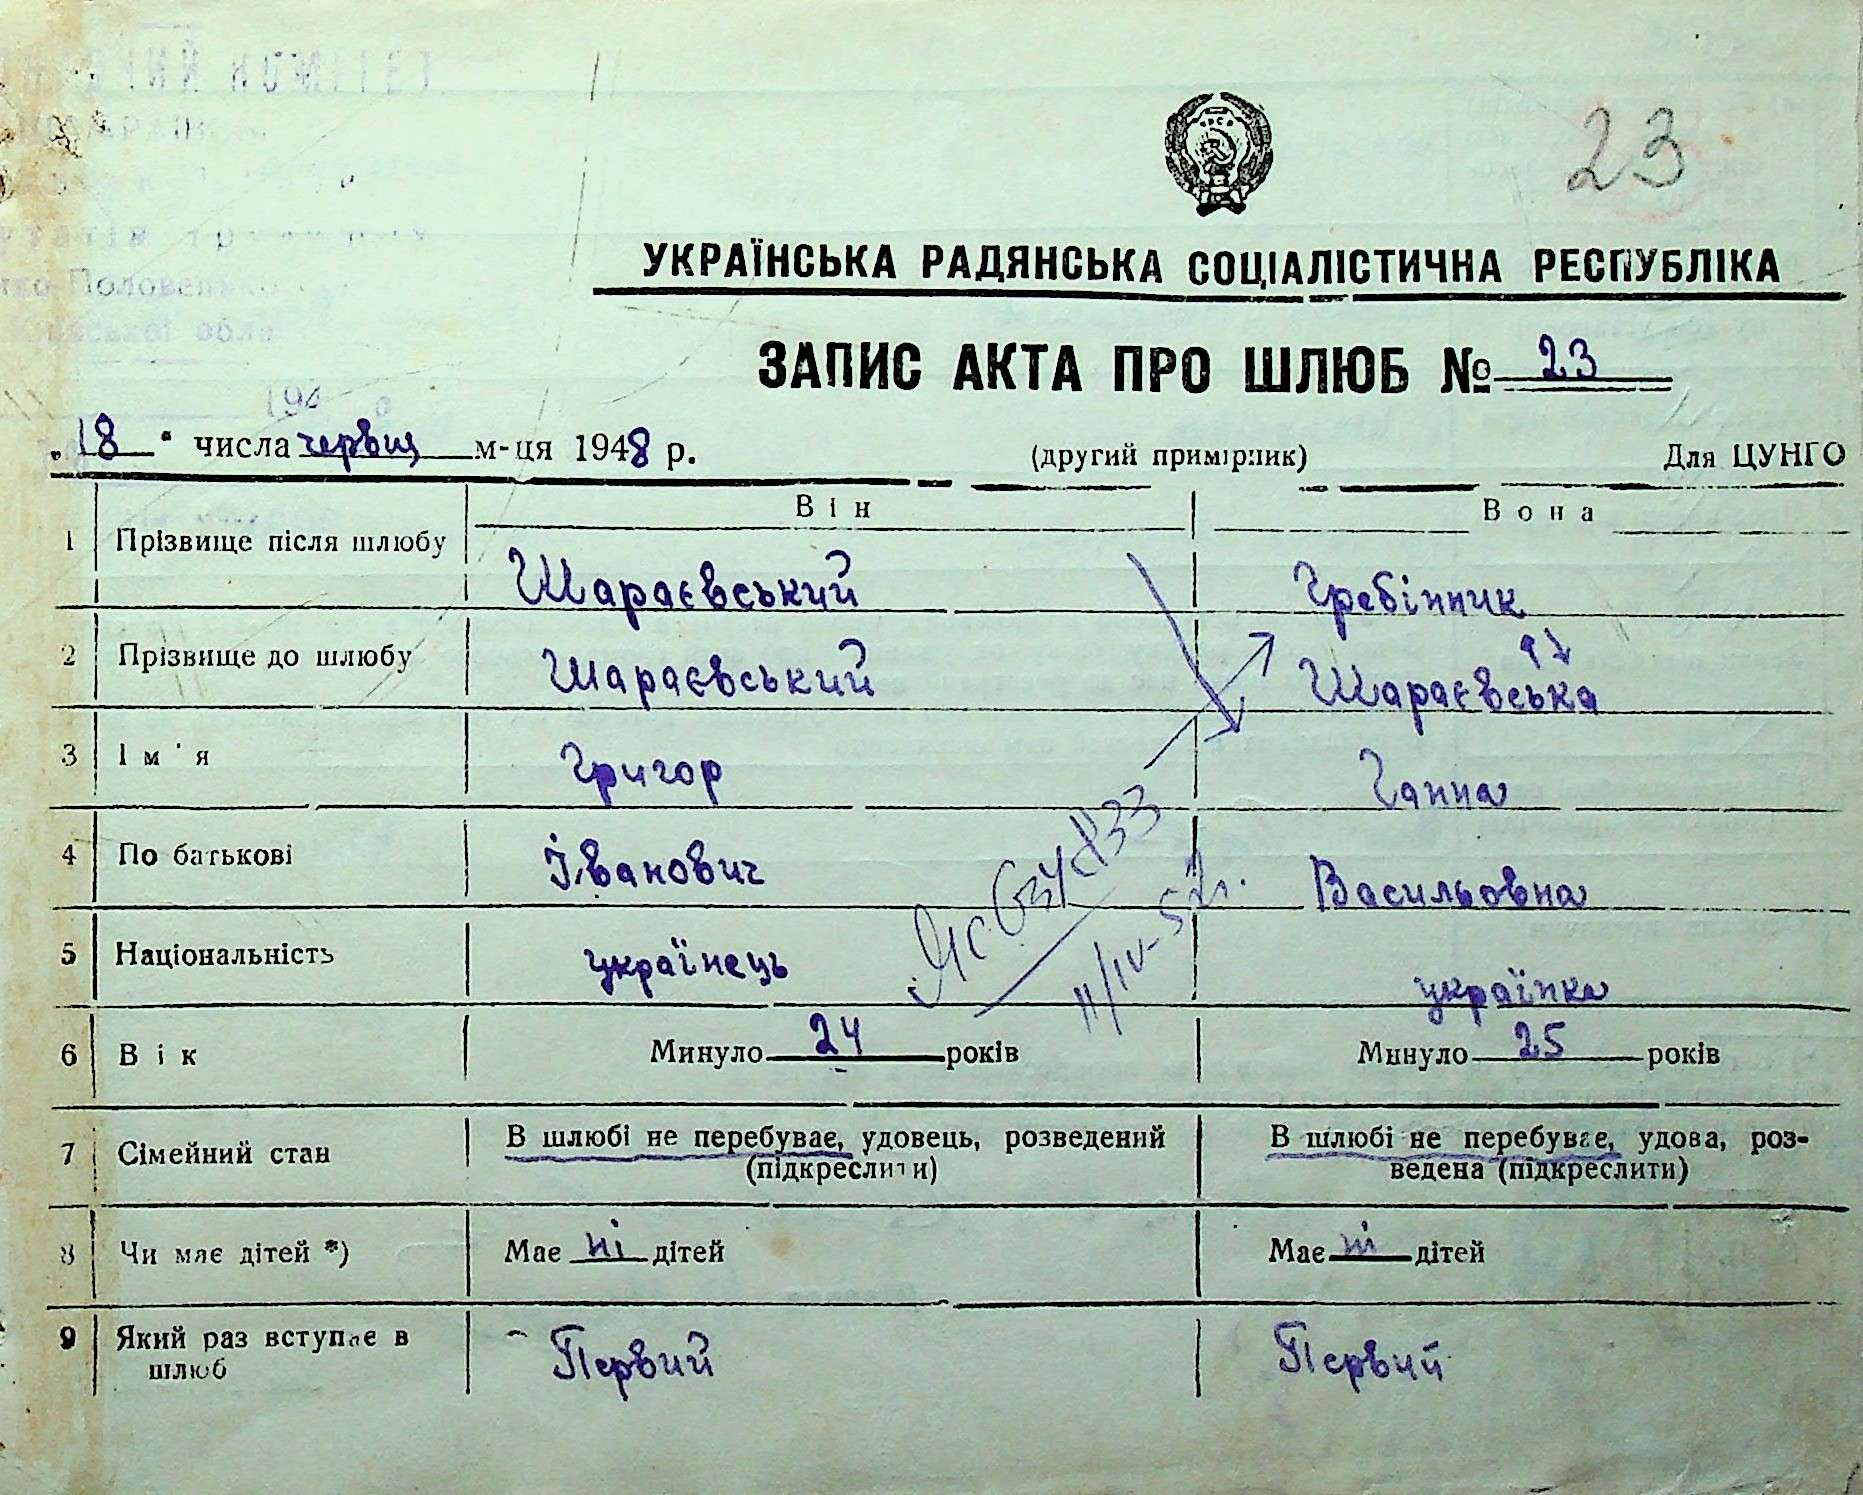 23
УКРАЇНСЬКА РАДЯНСЬКА СОЦІАЛІСТИЧНА РЕСПУБЛІКА
ЗАПИС АКТА ПРО ШЛЮБ № 23
„18“ числа червня м-ця 1948 р. (другий примірник) Для ЦУНГО
Він Вона
1 Прізвище після шлюбу Шараєвський Гребінник
2 Прізвище до шлюбу Шараєвський Шараєвська
3 Ім'я Григор Ганна
4 По батькові Іванович Васильовна
5 Національність українець українка
11/IV-52г.
6 Вік Минуло 24 років Минуло 25 років
7 Сімейний стан В шлюбі не перебуває, удовець, розведений В шлюбі не перебуває, удова, роз-
(підкреслити) ведена (підкреслити)
8 Чи має дітей *) Має ні дітей Має ні дітей
9 Який раз вступає в Первий Первий
шлюб